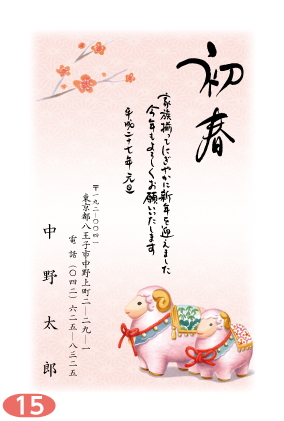 初春
家族揃ってにぎやかに新年を迎えました
今年もよろしくお願いいたします
平成二十七年 元旦
〒一九二-〇〇四一
東京都八王子市中野上町二-二九-一
電話(〇四二)六二五-八三二五
中野太郎
15